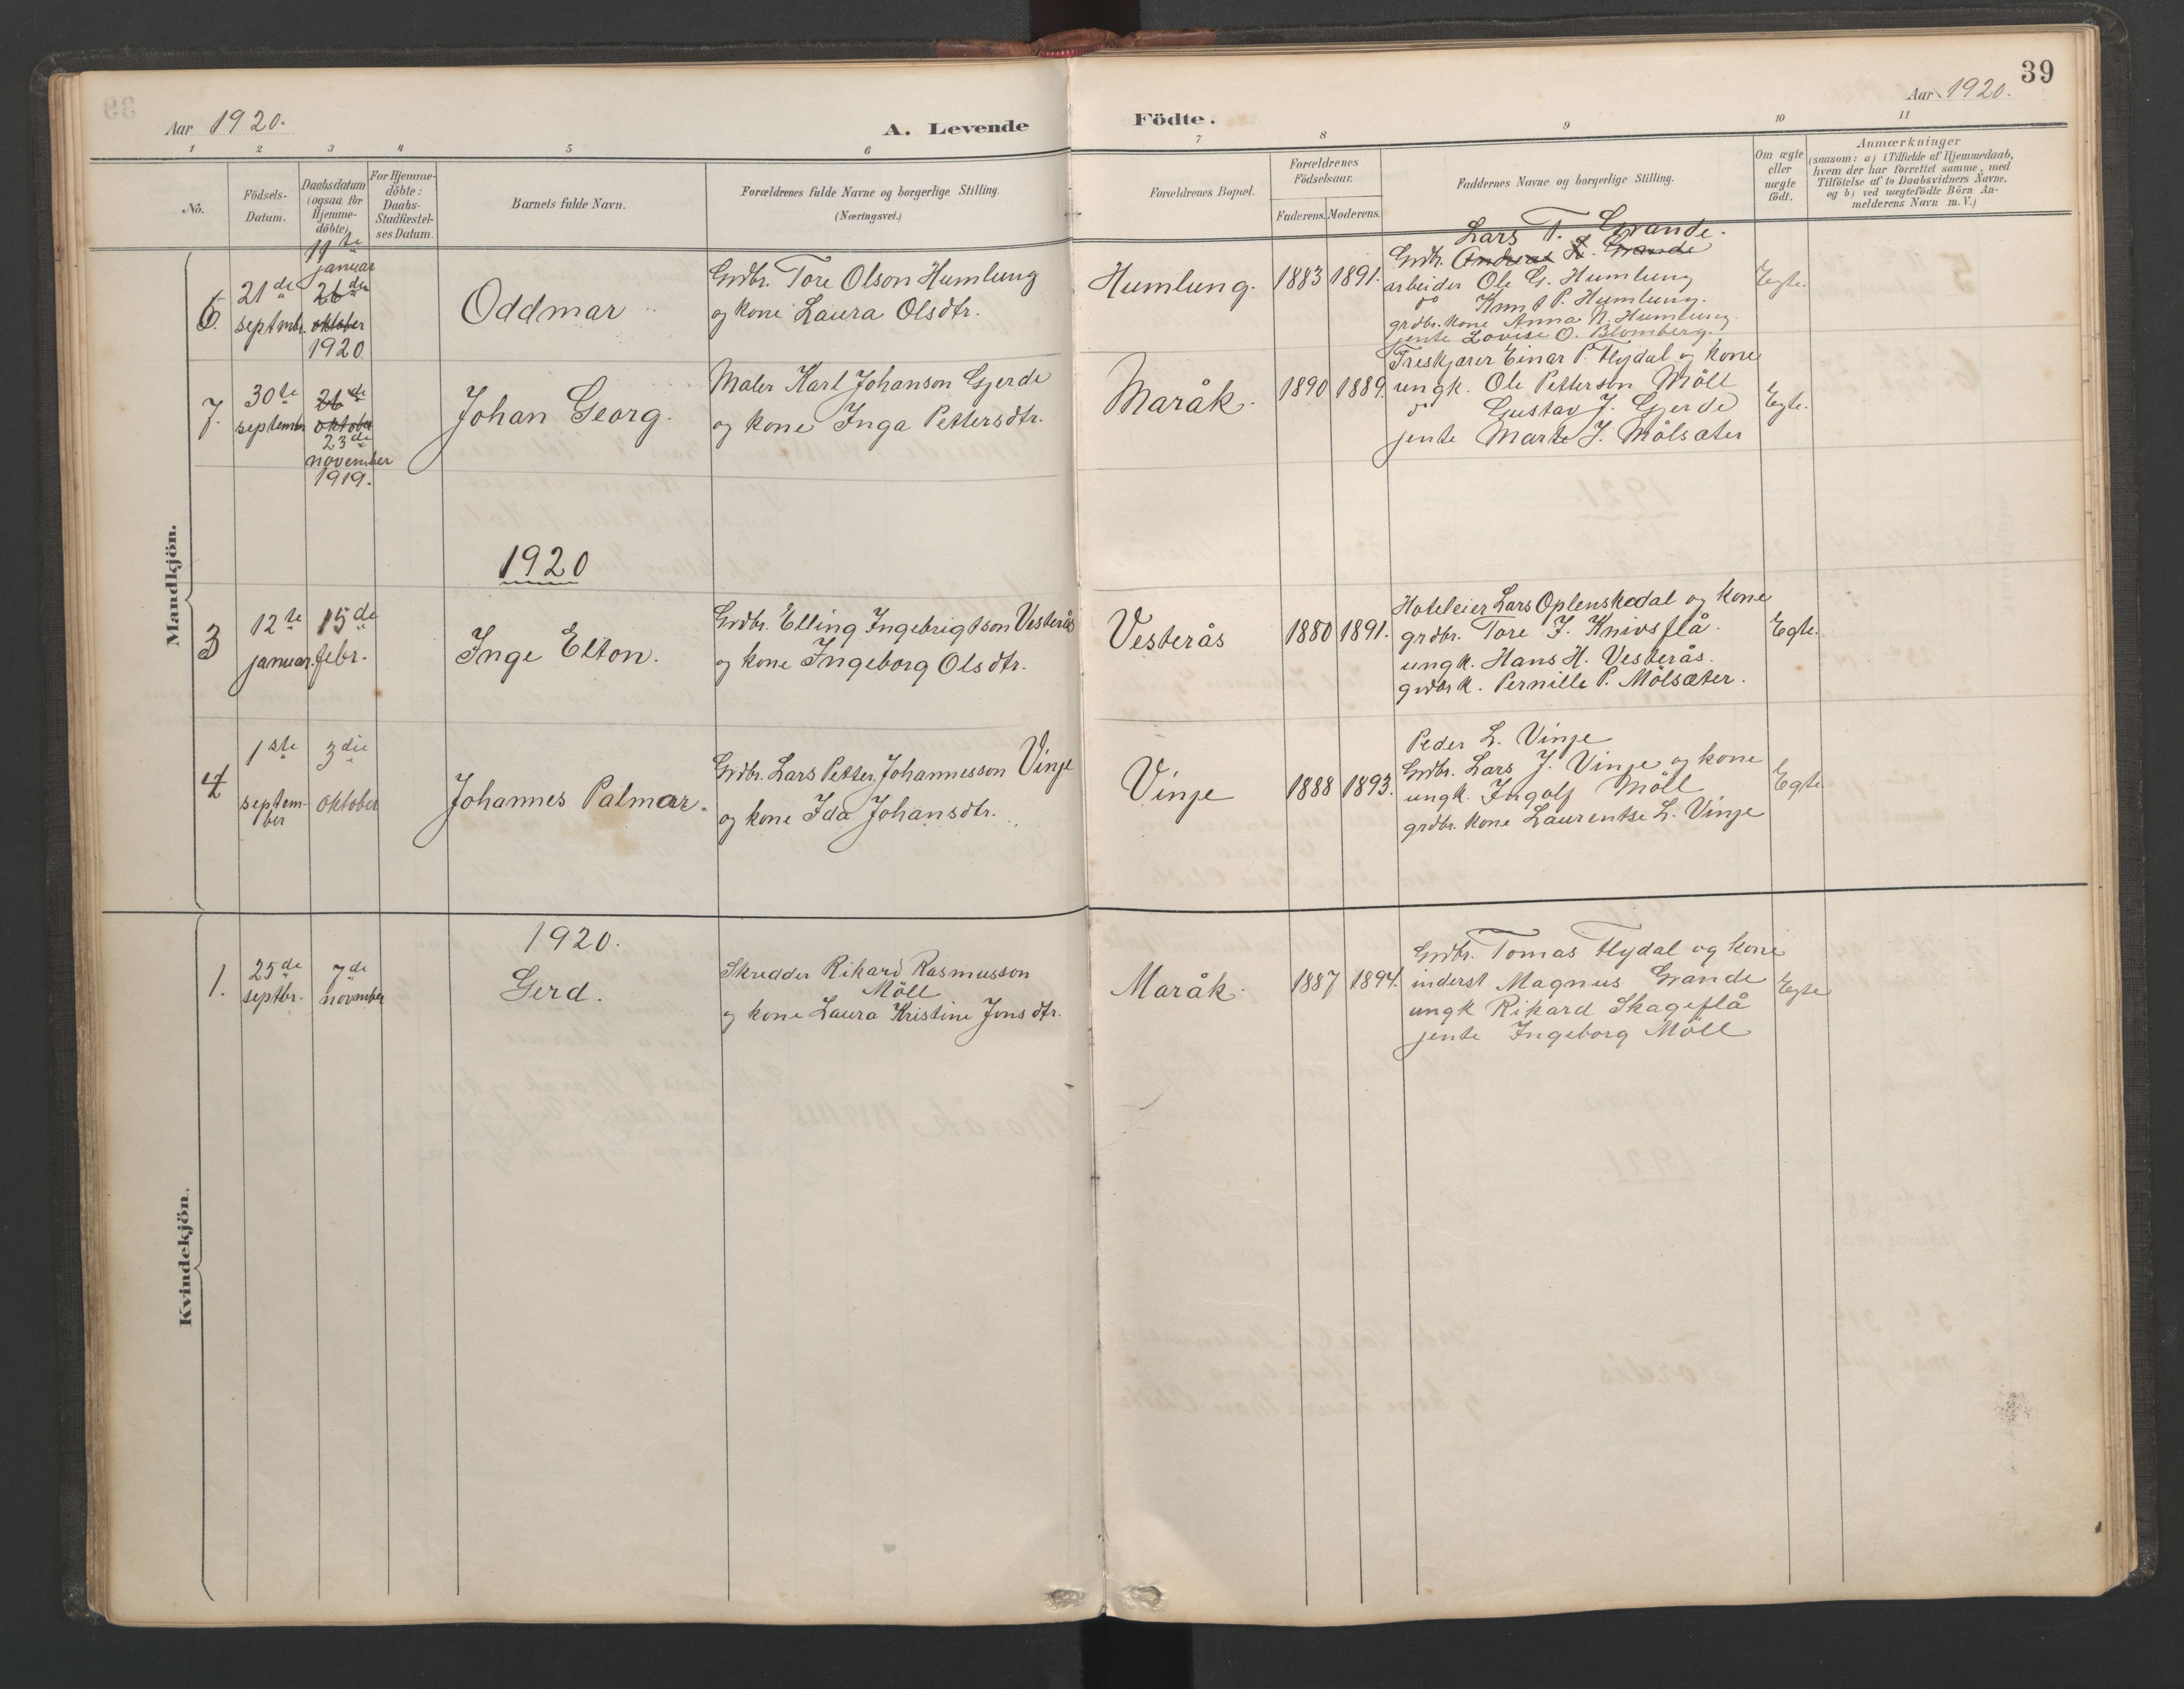 39
Aar 1920.
A. Levende
Födte.
Aar 1920.
1 2 3 4 5 6 7 8 9 10 11
No.
Födsels-
Datum.
Daabsdatum
(ogsaa for
Hjemme-
döbte)
For Hjemme-
döbte:
Daabs-
Stadfæstel-
ses Datum.
Barnets fulde Navn.
Forældrenes fulde Navne og borgerlige Stilling.
(Næringsvei.)
Forældrenes Bopæl.
Forældrenes
Födselsaar.
Faderens. Moderens.
Faddernes Navne og borgerlige Stilling.
Om ægte
eller
uægte
födt.
Anmærkninger
(saasom: a) i Tilfælde af Hjemmedaab,
hvem der har forrettet samme, med
Tilföielse af to Daabsvidners Navne.
og b) ved uægtefödte Börn An-
melderens Navn m. V.)
Mandkjön.
6.
21de
septmbr.
11te
januar
26de
oktober
1920
Oddmar
Grdbr. Tore Olson Humlung
og kone Laura Olsdtr.
Humlung.
1883 1891.
Lars T. Grande.
Grdbr. Andreas L. Grande
arbeider Ole G. Humlung
do Knut P. Humlung.
grdbr. kone Anna N. Humlung
jente Lovise O. Blomberg.
Egte.
7.
30te
septembr
26de
oktober
23de
november
1919.
Johan Georg.
Maler Karl Johanson Gjerde
og kone Inga Pettersdtr.
Maråk.
1890 1889.
Treskjærer Einar P. Flydal og kone
ungk. Ole Petterson Möll
do Gustav J. Gjerde
jente Marte J. Mölsæter
Egte.
1920
3
12te
januar.
15de
febr.
Inge Elton.
Grdbr. Elling Ingebrigtson Vesterås
og kone Ingeborg Olsdtr.
Vesterås
1880 1891.
Hoteleier Lars Oplenskedal og kone
grdbr. Tore J. Knivsflå.
ungk. Hans H. Vesterås.
grdbr k. Pernille P. Mölsæter.
Egte.
4
1ste
septem-
ber
3die
oktober
Johannes Palmar.
Grdbr. Lars Petter Johannesson Vinje
og kone Ida Johansdtr.
Vinje
1888 1893.
Peder L. Vinje
Grdbr. Lars J. Vinje og kone
ungk. Ingolf Möll
grdbr. kone Laurentse L. Vinje
Egte.
Kvindekjön.
1920.
1.
25de
septbr.
7de
november
Gerd.
Skredder Rikard Rasmusson
Möll
og kone Laura Kristine Jonsdtr.
Maråk.
1887 1894.
Grdbr. Tomas Flydal og kone
inderst Magnus Grande
ungk Rikard Skageflå
jente Ingeborg Möll
Egte